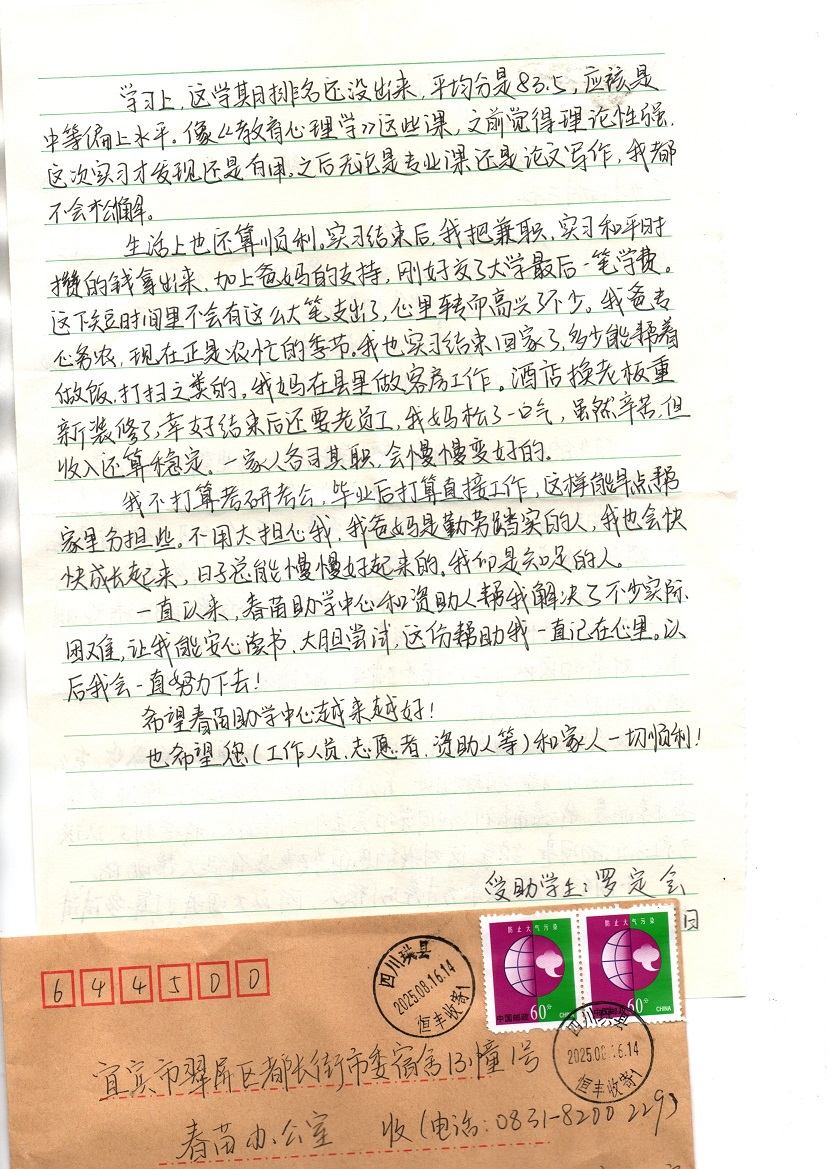 学习上,这学期排名还没出来,平均分是83.5,应该是
中等偏上水平。像《教育心理学》这些课,之前觉得理论性强,
这次实习才发现还是有用。之后无论是专业课还是论文写作,我都
不会松懈。
生活上也还算顺利。实习结束后,我把兼职、实习和平时
攒的钱拿出来,加上爸妈的支持,刚好交了大学最后一笔学费。
这下短时间里不会有这么大笔支出了,心里转而高兴了不少。我爸专
心务农,现在正是农忙的季节。我也实习结束回家了,多少能帮着
做饭、打扫之类的。我妈在县里做客房工作。酒店换老板重
新装修了,幸好结束后还要老员工,我妈松了一口气,虽然辛苦,但
收入还算稳定。一家人各司其职,会慢慢变好的。
我不打算考研考公,毕业后打算直接工作,这样能早点帮
家里分担些。不用太担心我,我爸妈是勤劳踏实的人,我也会快
快成长起来,日子总能慢慢好起来的。我们是知足的人。
一直以来,春苗助学中心和资助人帮我解决了不少实际
困难,让我能安心读书、大胆尝试,这份帮助我一直记在心里。以
后我会一直努力下去!
希望春苗助学中心越来越好!
也希望您(工作人员、志愿者、资助人等)和家人一切顺利!
受助学生:罗定会
日
防止大气污染 防止大气污染
中国邮政 60分 CHINA 中国邮政 60分 CHINA
四川珙县
2025.08.16.14
恒丰收寄1
四川珙县
2025.08.16.14
恒丰收寄1
644500
宜宾市翠屏区都长街市委宿舍13幢1号
春苗办公室 收(电话:0831-8200229)